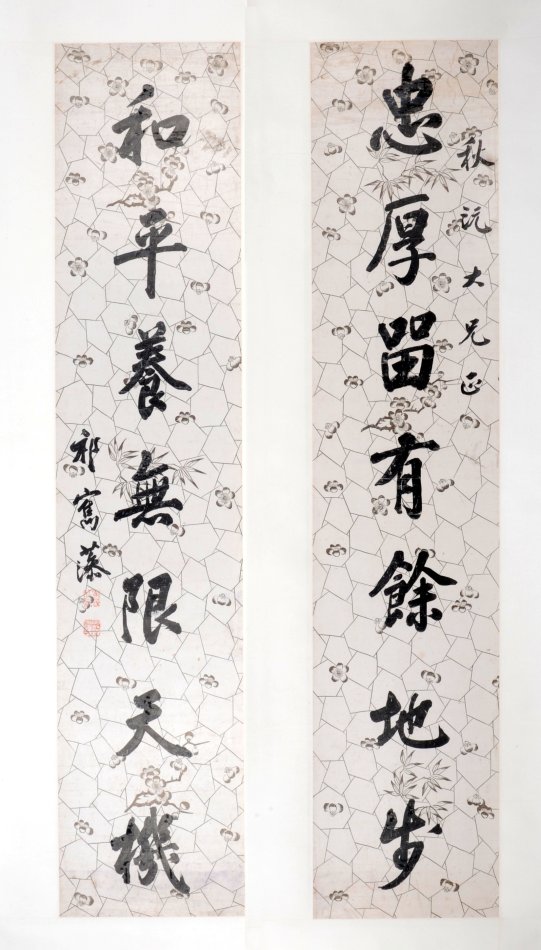 萩沅大兄正
忠厚留有餘地步
和平養無限天機
祁寯藻